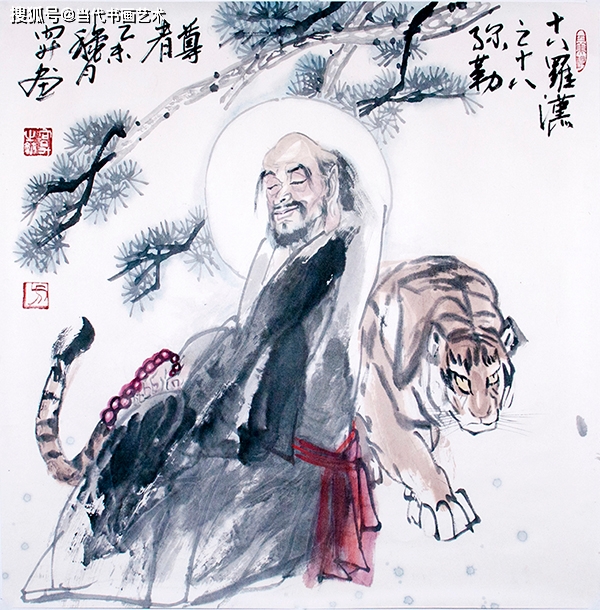 搜狐号@当代书画艺术
十八羅漢
之十八
弥勒
尊
者
乙未
月
画